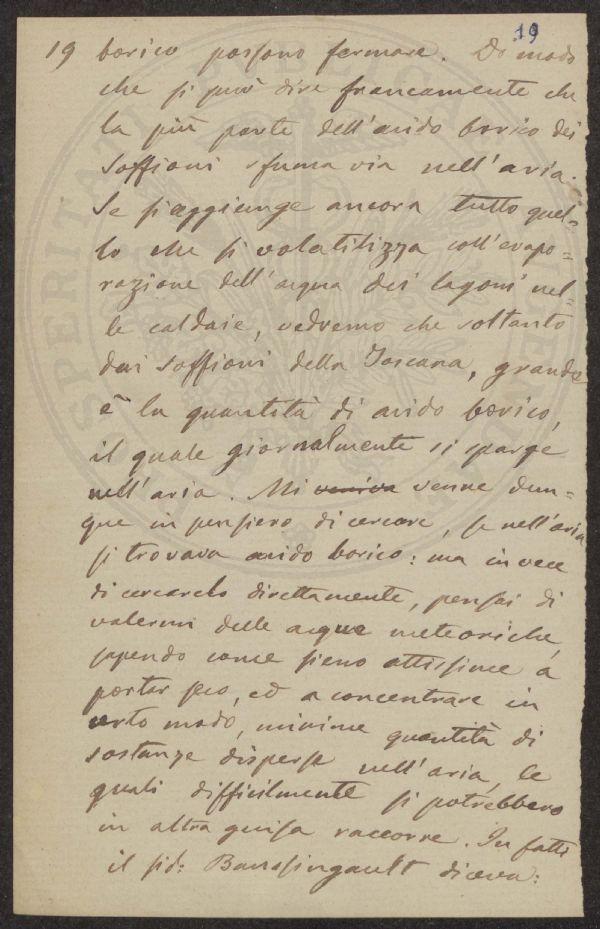 19
19 borico possono fermare. Di modo
che si può dire francamente che
la più parte dell'acido borico dei
Soffioni sfuma via nell'aria.
Se si aggiunge ancora tutto quel=
lo che si volatilizza coll'evapo=
razione dell'acqua dei lagoni nel=
le caldaie, vedremo che soltanto
dai Soffioni della Toscana, grande
è la quantità di acido borico,
il quale giornalmente si sparge
nell'aria. Mi veniva venne dun=
que in pensiero di cercare, se nell'aria
si trovava acido borico: ma in vece
di cercarelo direttamente, pensai di
valermi delle acque meteoriche,
sapendo come sieno attissime a
portar seco, ed a concentrare in
certo modo, minime quantità di
sostanze disperse nell'aria, le
quali difficilmente si potrebbero
in altra guisa raccorre. In fatti
il sid: Boussingault diceva: